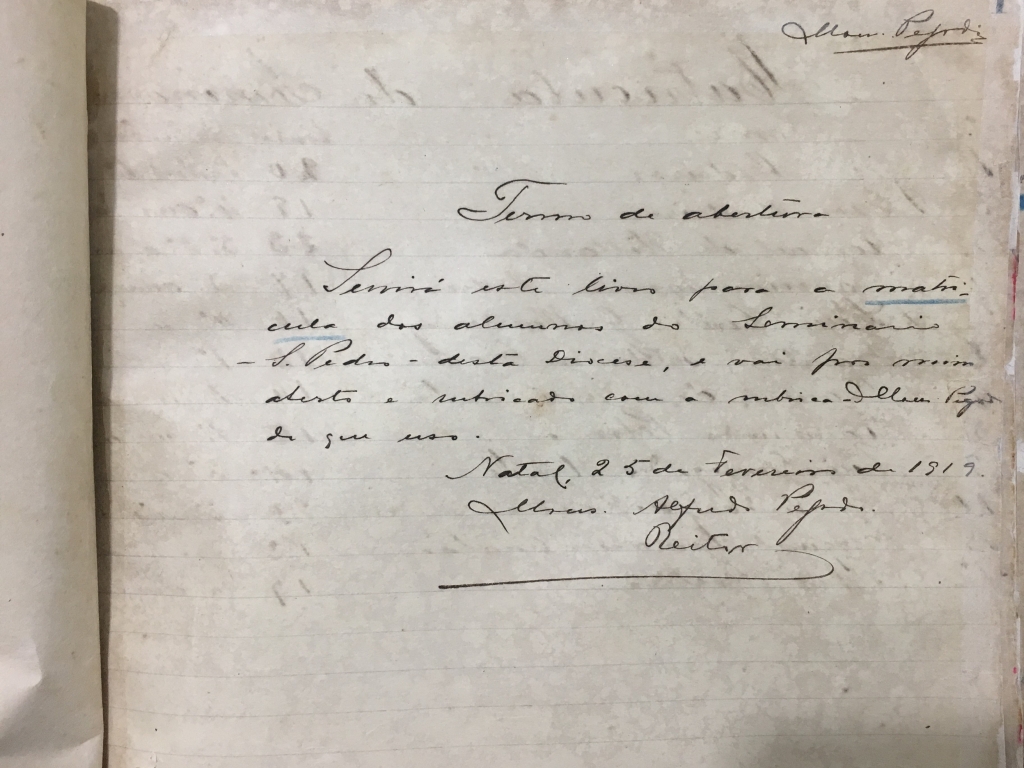 Mons. Pegado
Termo de abertura
Servirá este livro para a matri-
cula dos alumnos do Seminario
- S. Pedro - desta Diocese, e vai por mim
aberto e rubricado com a rubrica - Mons Pegado
de que uso.
Natal, 25 de Fevereiro de 1919.
Mons. Alfredo Pegado.
Reitor